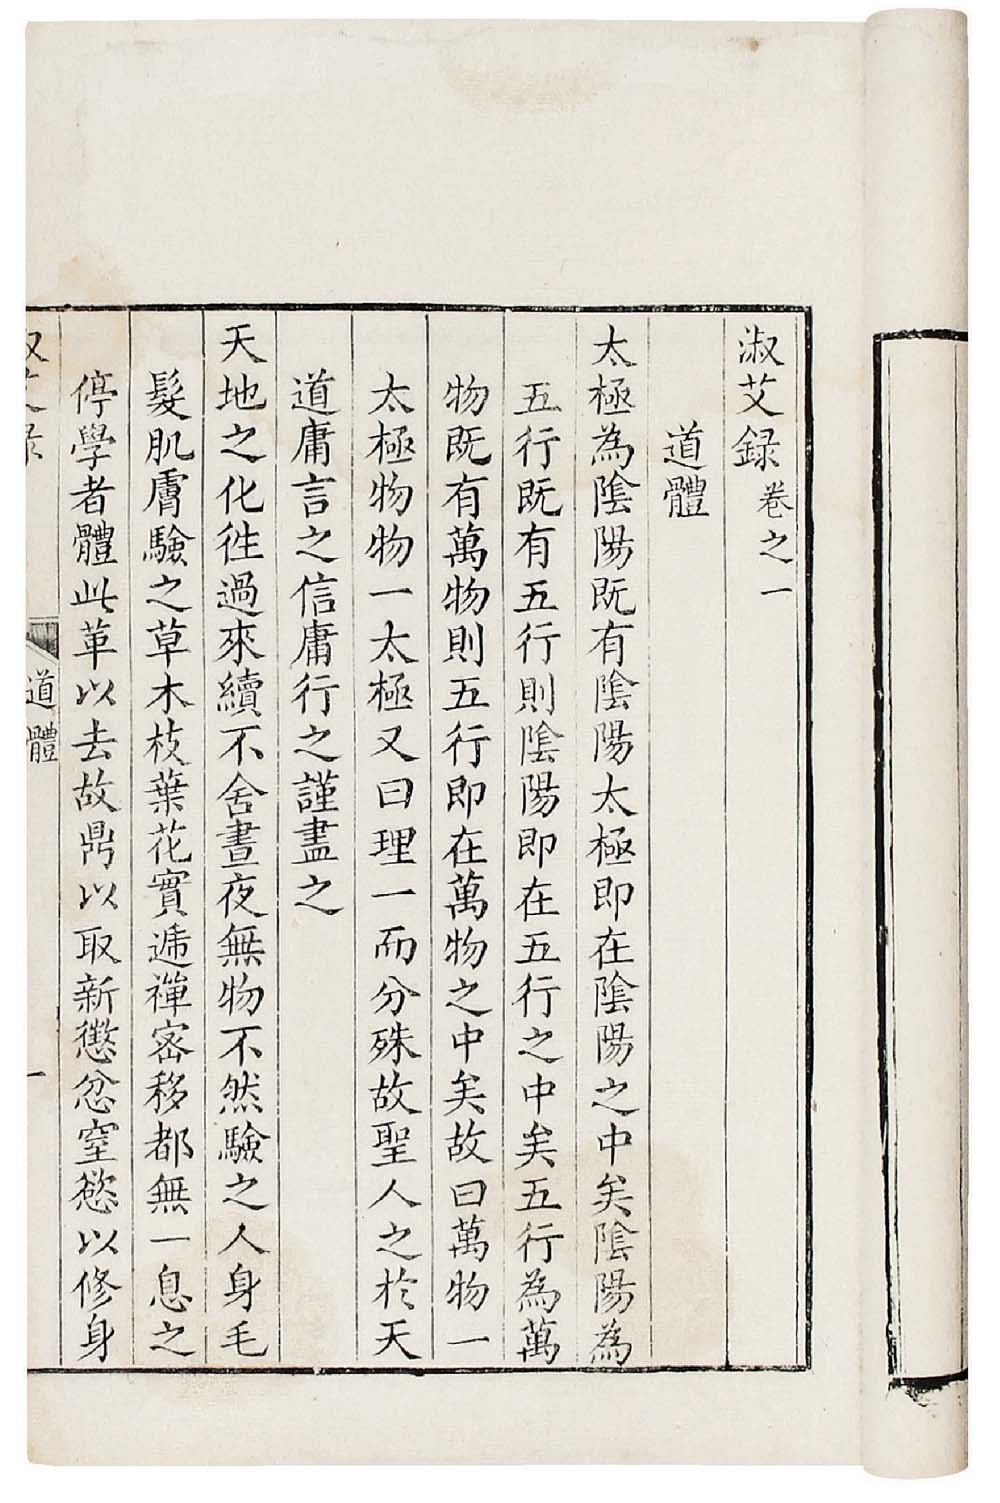 淑艾録卷之一
道體
太極為陰陽既有陰陽太極即在陰陽之中矣陰陽為
五行既有五行則陰陽即在五行之中矣五行為萬
物既有萬物則五行即在萬物之中矣故曰萬物一
太極物物一太極又曰理一而分殊故聖人之於天
道庸言之信庸行之謹盡之
天地之化徃過來續不舍晝夜無物不然驗之人身毛
髮肌膚驗之草木枝葉花實遞禪密移都無一息之
停學者體此革以去故鼎以取新懲忿窒慾以修身
道體 一